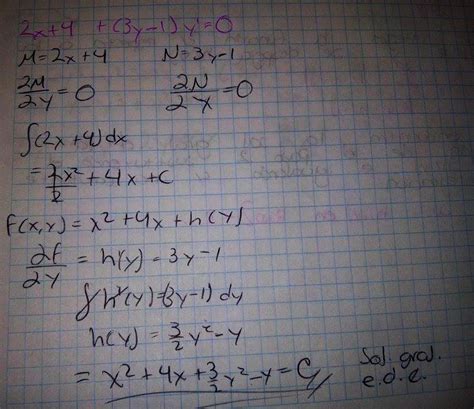 2x+4 +(3y-1)y'=0
M=2x+4 N=3y-1
∂M/∂y=0 ∂N/∂x=0
∫(2x+4)dx
=2x²/2+4x+C
f(x,y)=x²+4x+h(y)
∂f/∂y=h(y)=3y-1
∫h'(y)=(3y-1)dy
h(y)=3/2y²-y
=x²+4x+3/2y²-y=C//
Sol. gral.
e.d.e.